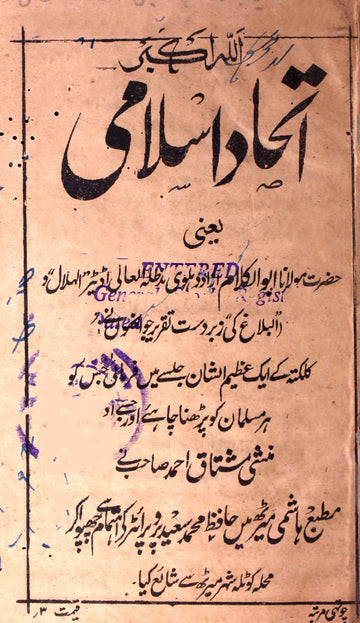 اللہ اکبر
اتحاد اسلامی
یعنی
حضرت مولانا ابوالکلام آزاد دہلوی مدظلہ العالی اڈیٹر "الہلال" و
"البلاغ" کی زبردست تقریر جو انہوں نے
ENTERED
General
کلکتہ کے ایک عظیم الشان جلسے میں فرمائی جس کو
ہر مسلمان کو پڑھنا چاہئے اور جسے
منشی مشتاق احمد صاحب نے
مطبع ہاشمی میرٹھ میں حافظ محمد سعید پروپرائٹر کے اہتمام سے چھپوا کر
محلہ کوٹلہ شہر میرٹھ سے شائع کیا۔
چوتھی مرتبہ
قیمت ۳؍